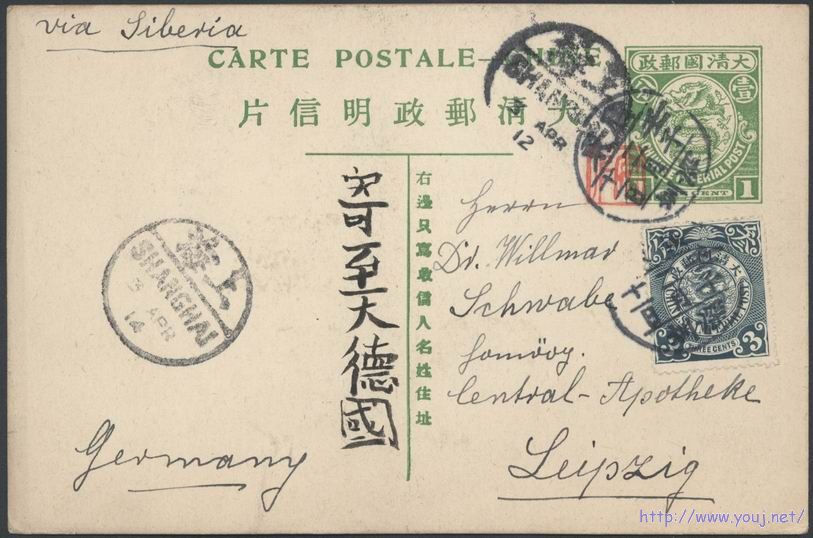 via Siberia
CARTE POSTALE—CHINE
大清郵政明信片
大清國郵政
壹
CHINESE IMPERIAL POST
CENT 1
SHANGHAI
APR
12
右邊只寫收信人名姓住址
寄至大德國
上海
SHANGHAI
3 APR
14
Herrn
Dr. Willmar
Schwabe
Central-Apotheke
Leipzig
Germany
THREE CENTS 3
http://www.youj.net/